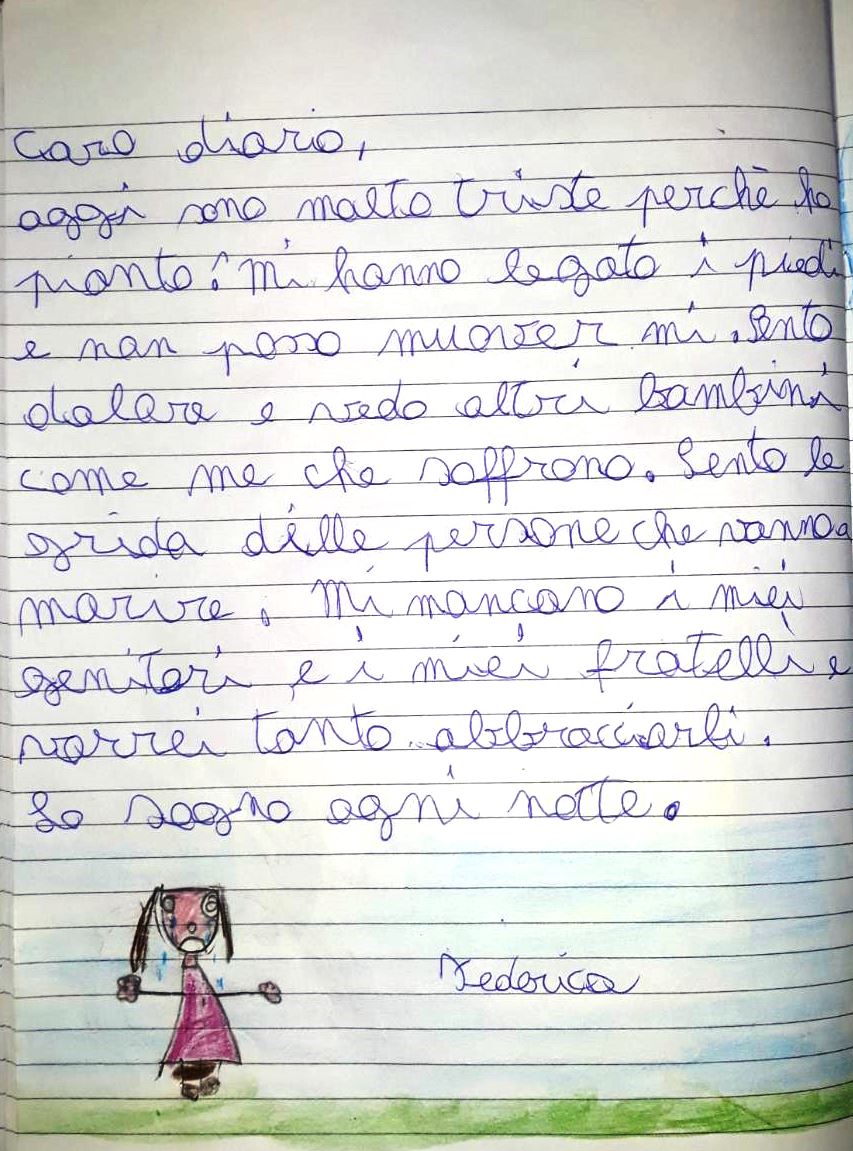 Caro diario,
oggi sono molto triste perchè ho
pianto: mi hanno legato i piedi
e non posso muover mi. Sento
dolore e vedo altri bambini
come me che soffrono. Sento le
grida delle persone che vanno a
morire. Mi mancano i miei
genitori e i miei fratelli e
vorrei tanto abbracciarli.
Lo sogno ogni notte.
Federica